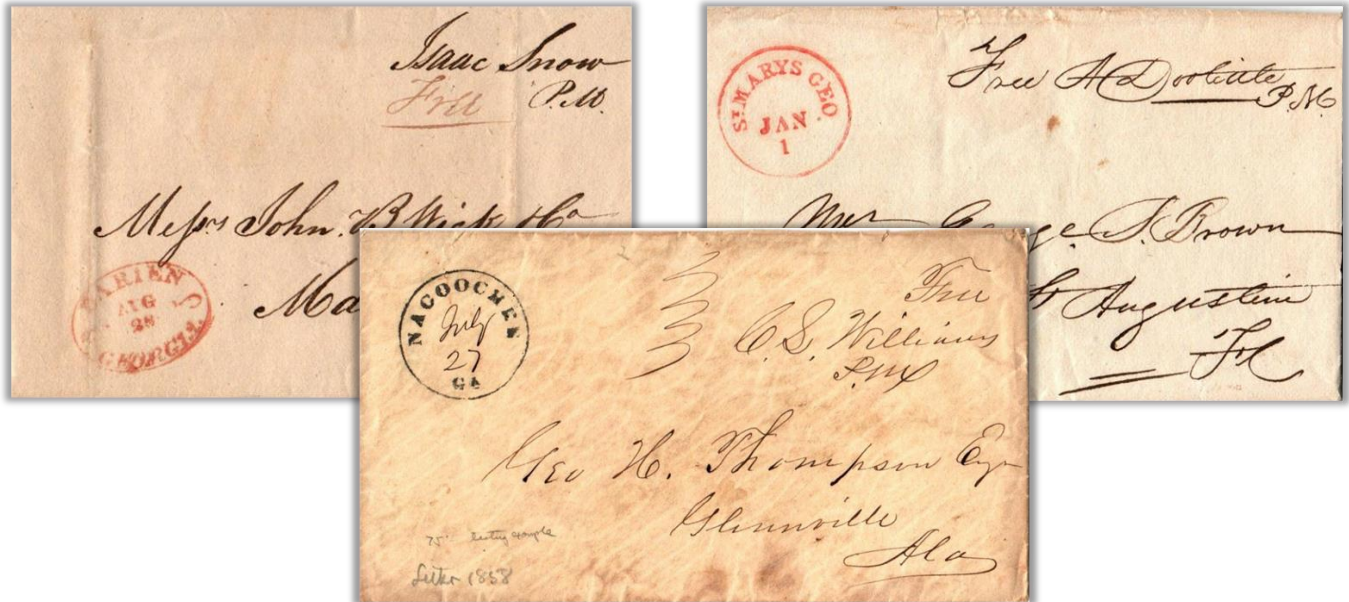 Isaac Snow
Free P.M.
Messrs John. B Wick & Co
Ma
DARIEN
AUG
28
GEORGIA
St. MARYS GEO.
JAN
1
Free A Doolittle
P.M.
Mr George. S. Brown
St Augustine
Fl
NACOOCHEE
July
27
GA
Free
C. S. Williams
P.M
Geo H. Thompson Esqr
Glennville
Ala
75
Letter 1858